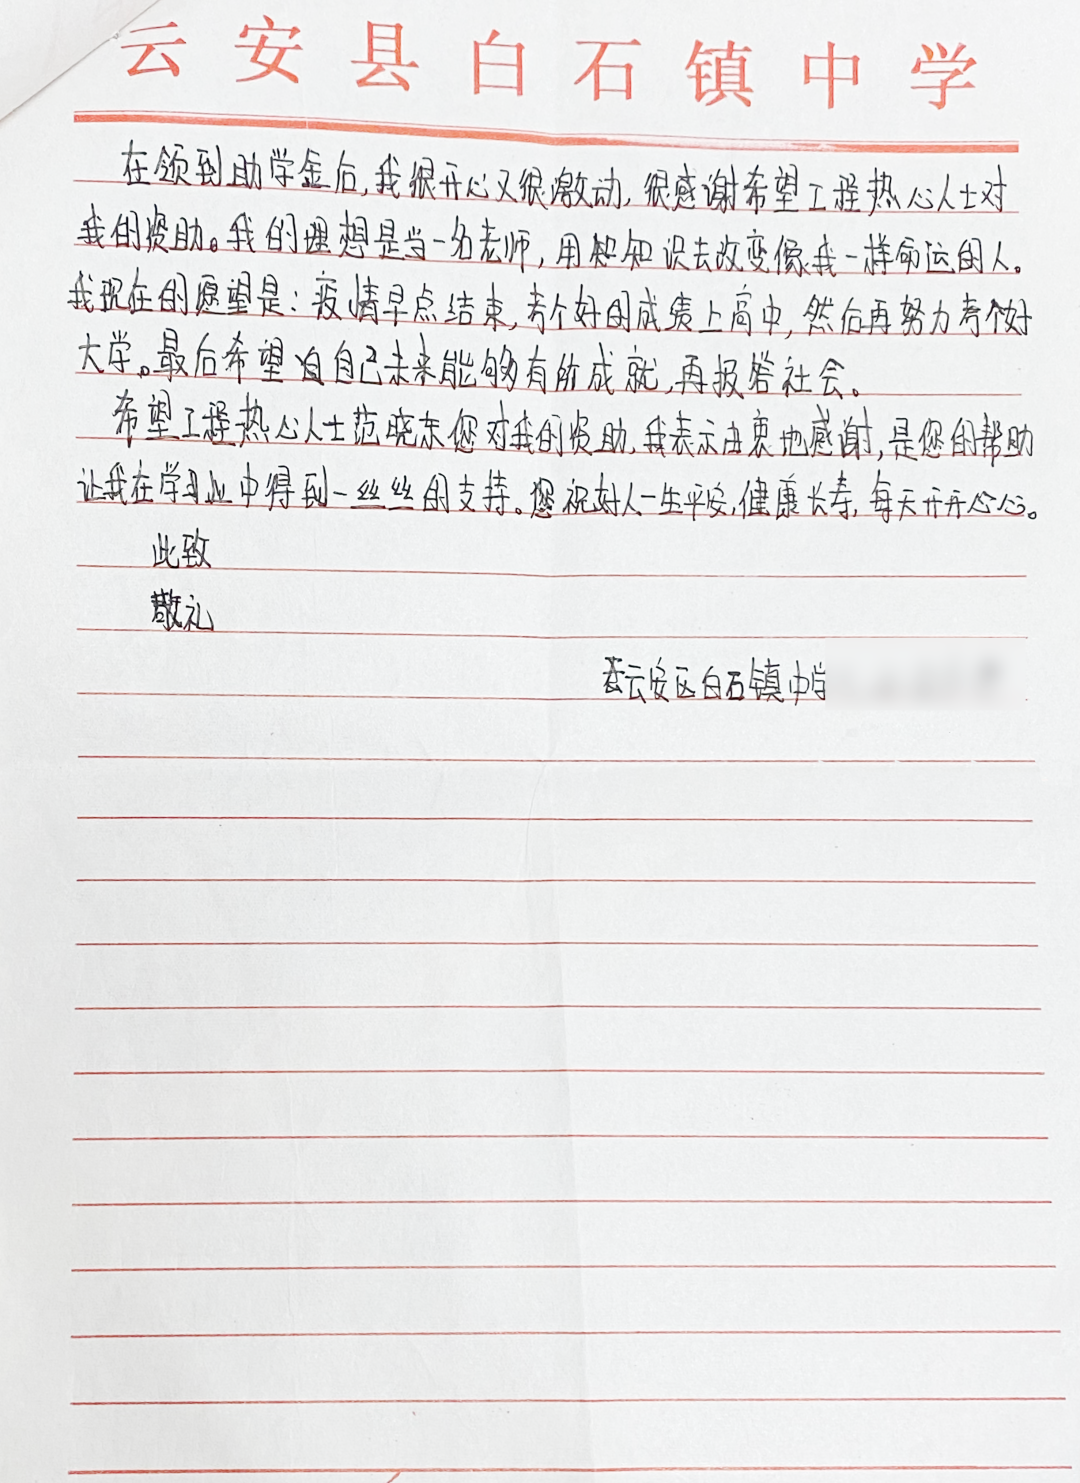 云安县白石镇中学
在领到助学金后,我很开心又很激动,很感谢希望工程热心人士对
我的资助。我的理想是当一名老师,用知识去改变像我一样命运的人。
我现在的愿望是:疫情早点结束,考个好的成绩上高中,然后再努力考个好
大学。最后希望自己未来能够有所成就,再报答社会。
希望工程热心人士范晓东您对我的资助,我表示由衷地感谢,是您的帮助
让我在学习业中得到一丝丝的支持。祝好人一生平安,健康长寿,每天开开心心。
此致
敬礼
云安区白石镇中学